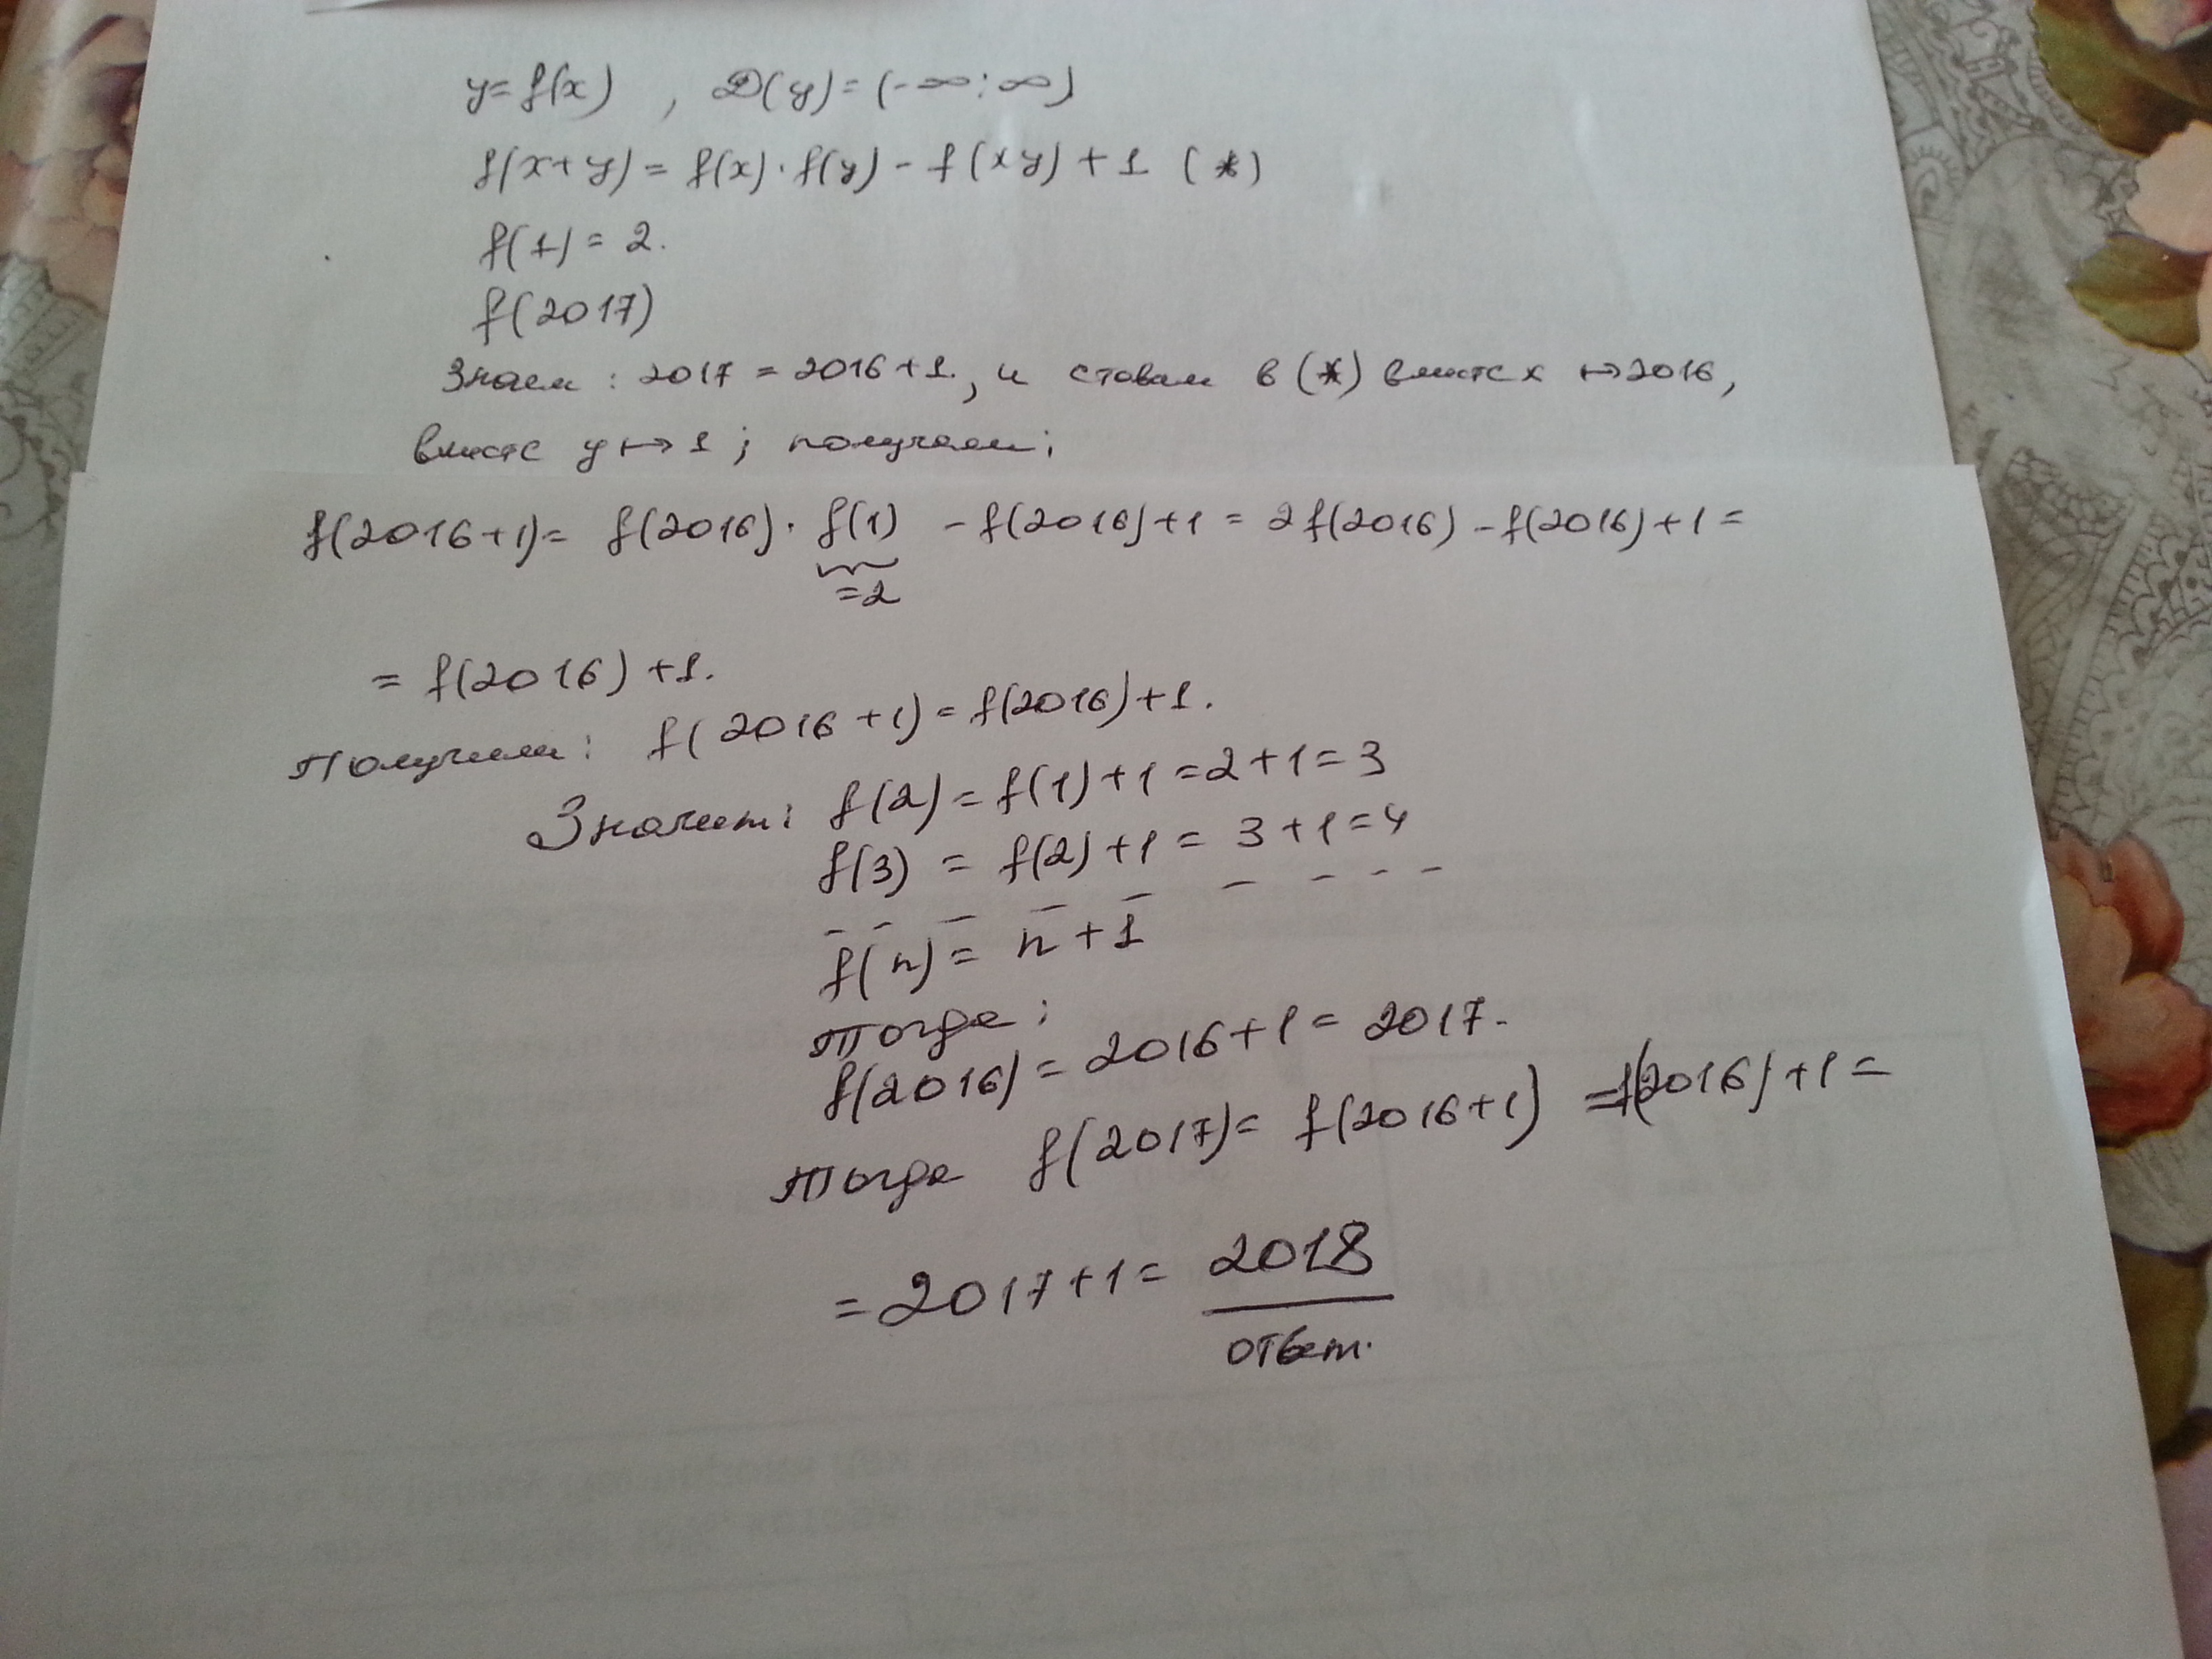 y = f(x) , D(y) = (-∞; ∞)
f(x+y) = f(x)·f(y) - f(xy) + 1 (*)
f(1) = 2.
f(2017)
Знаем: 2017 = 2016+1, и ставим в (*) вместе x ↦ 2016,
вместе y ↦ 1; получаем;
f(2016+1) = f(2016)· f(1) - f(2016)+1 = 2f(2016) - f(2016)+1 =
=2
= f(2016) +1.
Получили: f(2016+1) = f(2016)+1.
Значит: f(2) = f(1)+1 = 2+1 = 3
f(3) = f(2)+1 = 3+1 = 4
- - - - - - - - -
f(n) = n+1
тогда:
f(2016) = 2016+1 = 2017.
тогда f(2017) = f(2016+1) = f(2016)+1 =
= 2017+1 = 2018
ответ.